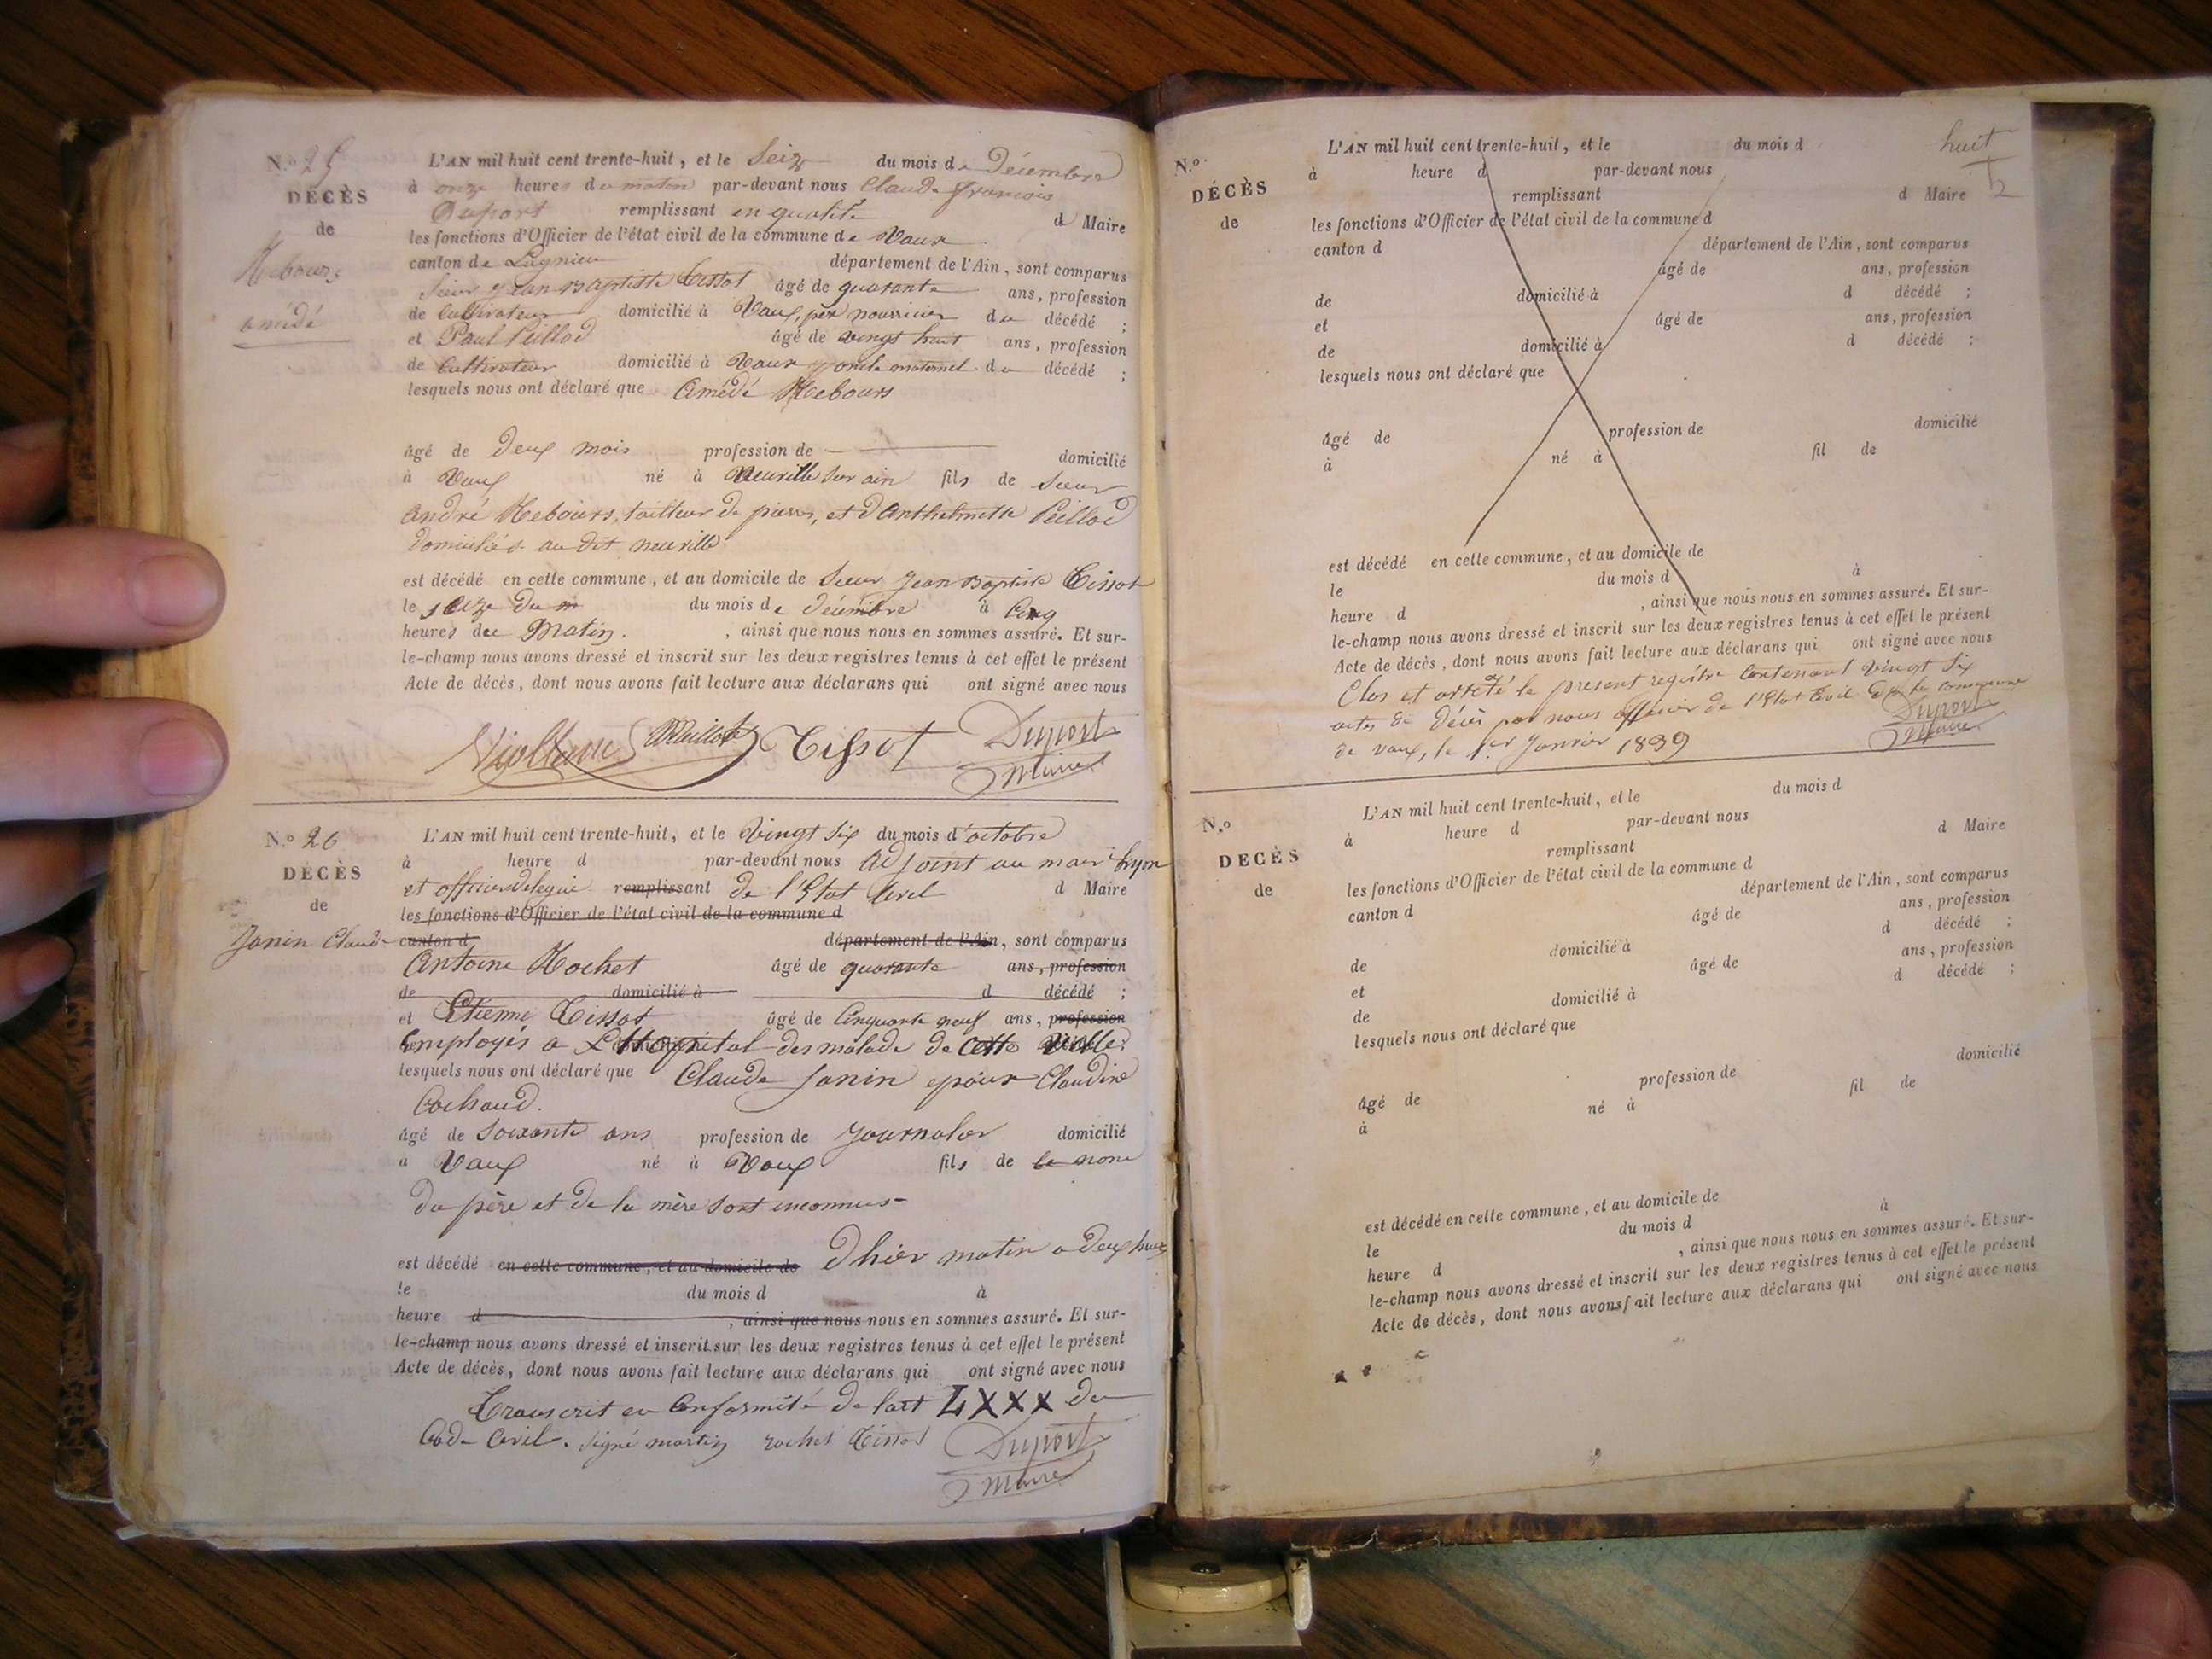 N.º 25
DÉCÈS
de
Rebours
amédé
L'AN mil huit cent trente-huit, et le Seize du mois de Décembre
à onze heures du matin par-devant nous Claude françois
Duport remplissant en qualité d Maire
les fonctions d'Officier de l'état civil de la commune de Vaux
canton de Lagnieu département de l'Ain, sont comparus
Sieur Jean Baptiste Tissot âgé de quarante ans, profession
de Cultivateur domicilié à Vaux, père nourricier du décédé ;
et Paul Peillod âgé de vingt huit ans, profession
de Cultivateur domicilié à Vaux oncle maternel du décédé ;
lesquels nous ont déclaré que Amédé Rebours
âgé de deux mois profession de domicilié
à Vaux né à Neuville sur ain fils de sieur
André Rebours, tailleur de pierres, et d'Anthelmette Peillod
domiciliés au dit neuville
est décédé en cette commune, et au domicile de Sieur Jean Baptiste Tissot
le seize du m du mois de décembre à Cinq
heures du Matin. , ainsi que nous nous en sommes assuré. Et sur-
le-champ nous avons dressé et inscrit sur les deux registres tenus à cet effet le présent
Acte de décès, dont nous avons fait lecture aux déclarans qui ont signé avec nous
Tissot Duport
Maire
N.º 26
DÉCÈS
de
Janin Claude
L'AN mil huit cent trente-huit, et le Vingt six du mois d'octobre
à heure d par-devant nous Adjoint au maire Lyon
et officier delegué remplissant de l'Etat Civil d Maire
les fonctions d'Officier de l'état civil de la commune d
canton d département de l'Ain, sont comparus
Antoine Rochet âgé de quarante ans, profession
de domicilié à d décédé ;
et Etienne Tissot âgé de Cinquante neuf ans, profession
Employés a L'Hopital des malade de cette ville
lesquels nous ont déclaré que Claude Janin epoux Claudine
Cochaud.
âgé de soixante ans profession de Journalier domicilié
à Vaux né à Vaux fils de le nom
du père et de la mère sont inconnus
est décédé en cette commune, et au domicile de D'hier matin a deux heures
le du mois d à
heure d , ainsi que nous nous en sommes assuré. Et sur-
le-champ nous avons dressé et inscrit sur les deux registres tenus à cet effet le présent
Acte de décès, dont nous avons fait lecture aux déclarans qui ont signé avec nous
Transcrit en Conformité de l'art LXXX du
Code Civil. signé martin rochet Tissot Duport
Maire
huit
N.º
DÉCÈS
de
L'AN mil huit cent trente-huit, et le du mois d
à heure d par-devant nous
remplissant d Maire
les fonctions d'Officier de l'état civil de la commune d
canton d département de l'Ain, sont comparus
âgé de ans, profession
de domicilié à d décédé ;
et âgé de ans, profession
de domicilié à d décédé ;
lesquels nous ont déclaré que
âgé de profession de domicilié
à né à fil de
est décédé en cette commune, et au domicile de
le du mois d à
heure d , ainsi que nous nous en sommes assuré. Et sur-
le-champ nous avons dressé et inscrit sur les deux registres tenus à cet effet le présent
Acte de décès, dont nous avons fait lecture aux déclarans qui ont signé avec nous
Clos et arrêté le present registre Contenant Vingt Six
actes de Décès par nous officier de l'Etat Civil de la commune
de vaux, le 1.er Janvier 1839 Duport
Maire
N.º
DÉCÈS
de
L'AN mil huit cent trente-huit, et le du mois d
à heure d par-devant nous
remplissant d Maire
les fonctions d'Officier de l'état civil de la commune d
canton d département de l'Ain, sont comparus
âgé de ans, profession
de domicilié à d décédé ;
et âgé de ans, profession
de domicilié à d décédé ;
lesquels nous ont déclaré que
âgé de profession de domicilié
à né à fil de
est décédé en cette commune, et au domicile de
le du mois d à
heure d , ainsi que nous nous en sommes assuré. Et sur-
le-champ nous avons dressé et inscrit sur les deux registres tenus à cet effet le présent
Acte de décès, dont nous avons fait lecture aux déclarans qui ont signé avec nous